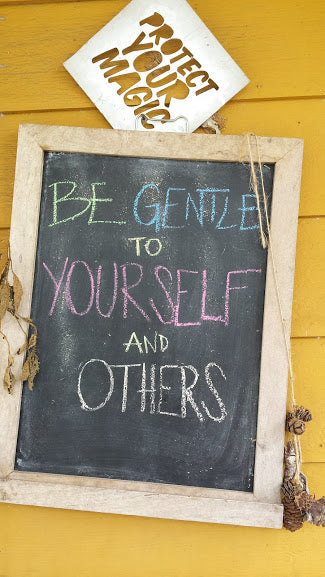 PROTECT
YOUR
MAGIC
BE GENTLE
TO
YOURSELF
AND
OTHERS